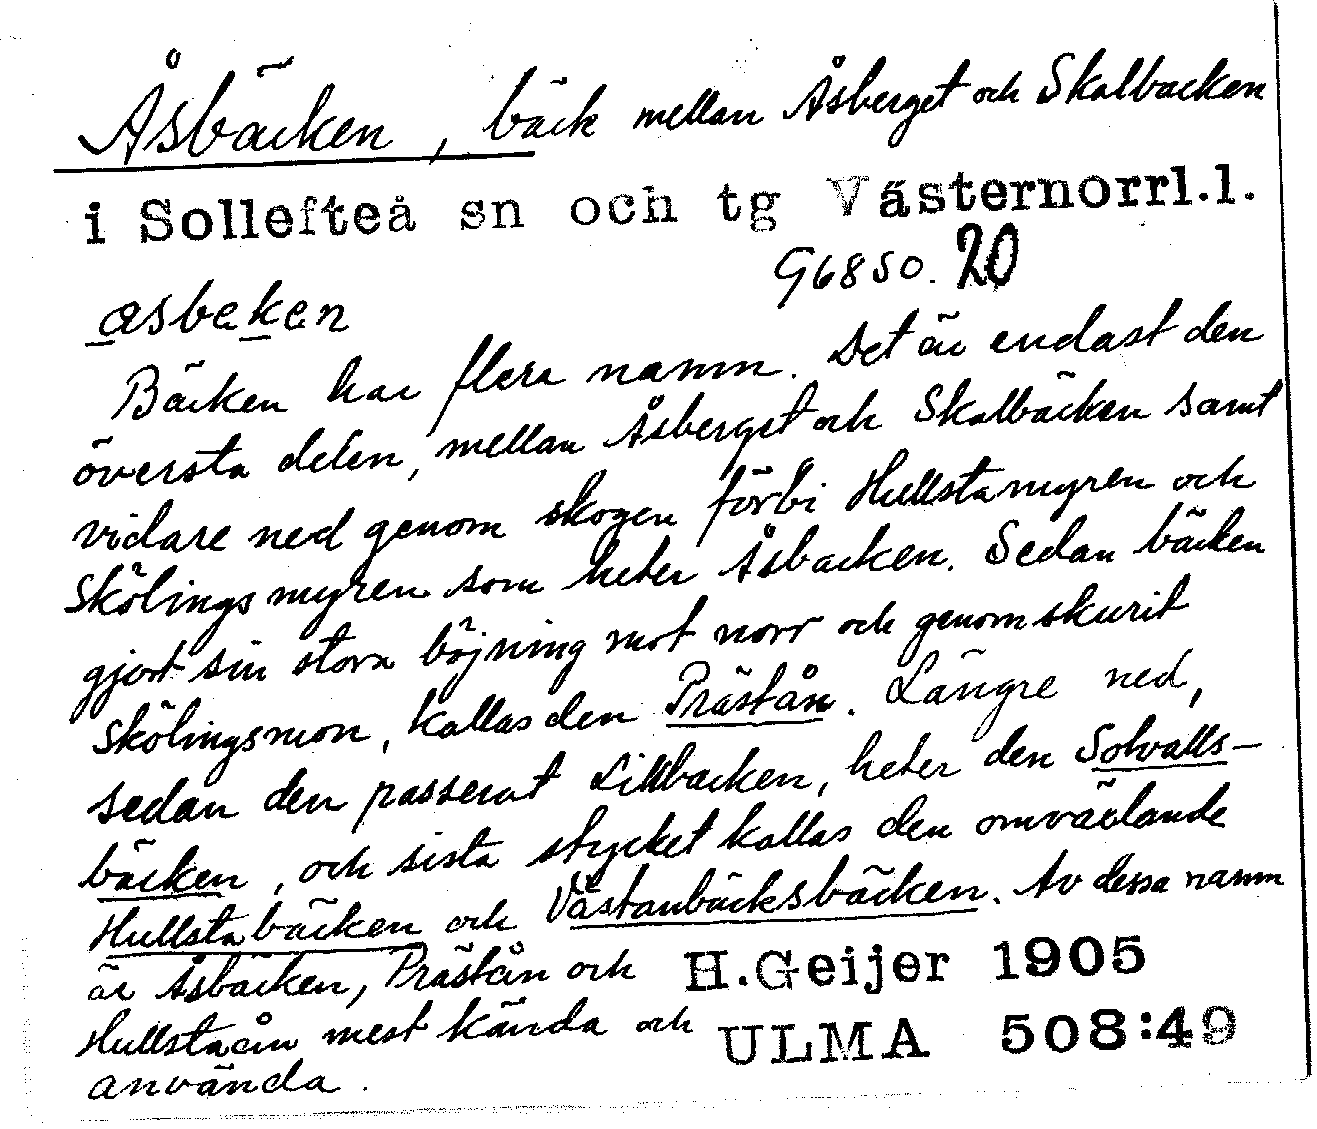 Åsbäcken, bäck mellan Åsberget och Skalbacken
i Sollefteå sn och tg Västernorrl.l.
G6850. 20
asbekæn
Bäcken har flera namn. Det är endast den
översta delen, mellan Åsberget och Skalbäcken samt
vidare ned genom skogen förbi Hullstamyren och
Skölingsmyren som heter Åsbäcken. Sedan bäcken
gjort sin stora böjning mot norr och genomskurit
Skölingsmon, kallas den Prästån. Längre ned,
sedan den passerat Lillbäcken, heter den Solvalls-
bäcken, och sista stycket kallas den omväxlande
Hullstabäcken och Västanbäcksbäcken. Av dessa namn
är Åsbäcken, Prästån och
Hullstaån mest kända och
använda.
H.Geijer 1905
ULMA 508:49